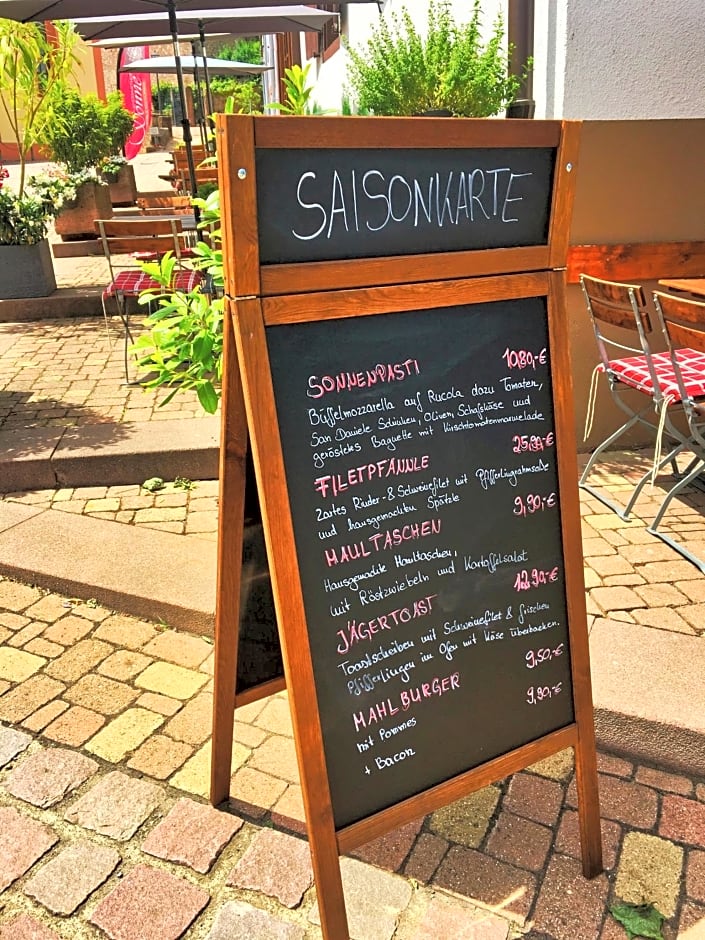 SAISONKARTE
SONNENPASTI 10,80,-€
Büffelmozzarella auf Rucola dazu Tomaten,
San Daniele Schinken, Oliven, Schafskäse und
geröstetes Baguette mit Kirschtomatenmarmelade
FILETPFÄNNLE 25,90,-€
Zartes Rinder- & Schweinefilet mit Pfifferlingrahmsoße
und hausgemachten Spätzle
MAULTASCHEN 9,90,-€
Hausgemachte Maultaschen,
mit Röstzwiebeln und Kartoffelsalat
JÄGERTOAST 12,90,-€
Toastscheiben mit Schweinefilet & frischen
Pfifferlingen im Ofen mit Käse überbacken.
MAHLBURGER 9,50,-€
mit Pommes 9,90,-€
+ Bacon